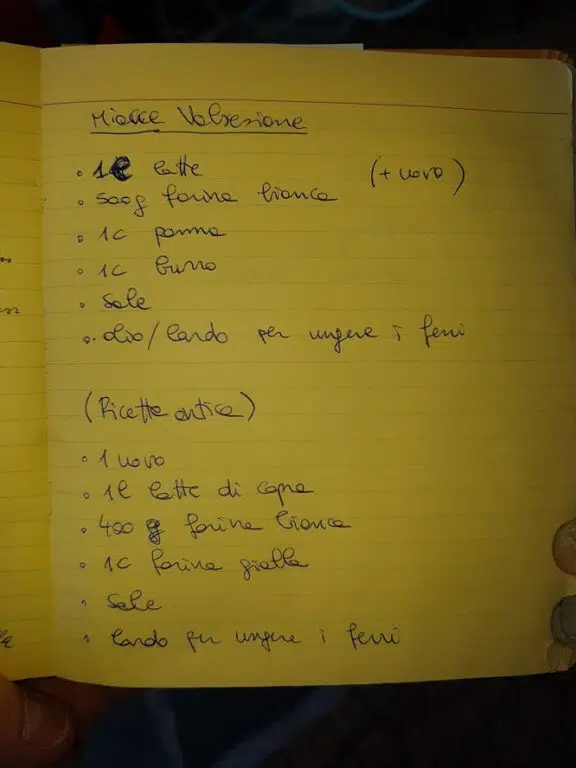 Miacce Valsesiane
• 1l latte (+ uovo)
• 500g farina bianca
• 1c panna
• 1c burro
• Sale
• olio/lardo per ungere i ferri
(Ricetta antica)
• 1 uovo
• 1l latte di capra
• 400 g farina bianca
• 1c farina gialla
• Sale
• lardo per ungere i ferri